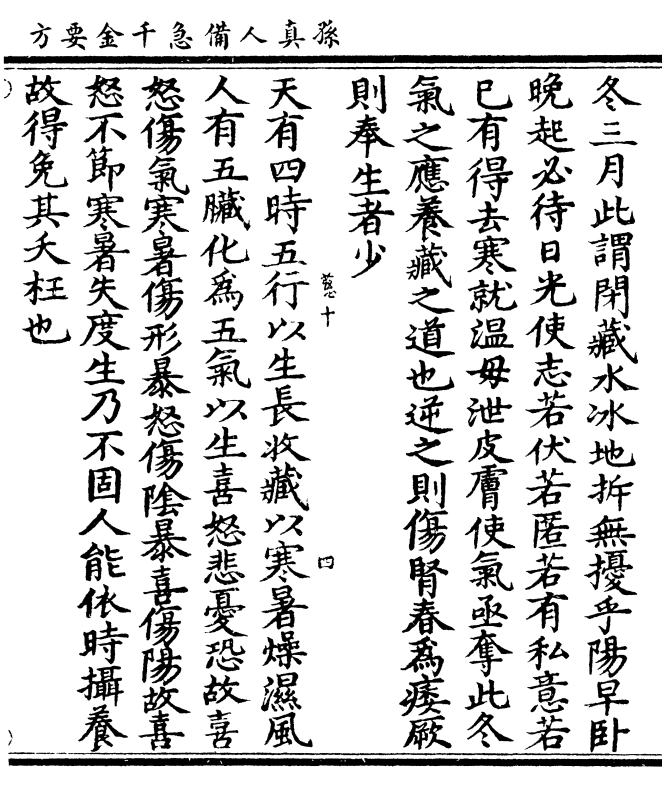 孫真人備急千金要方
冬三月此謂閉藏水冰地拆無擾乎陽早卧
晚起必待日光使志若伏若匿若有私意若
已有得去寒就温毋泄皮膚使氣亟奪此冬
氣之應養藏之道也逆之則傷腎春爲痿厥
則奉生者少
慈十
四
天有四時五行以生長收藏以寒暑燥濕風
人有五臟化爲五氣以生喜怒悲憂恐故喜
怒傷氣寒暑傷形暴怒傷陰暴喜傷陽故喜
怒不節寒暑失度生乃不固人能依時攝養
故得免其夭枉也